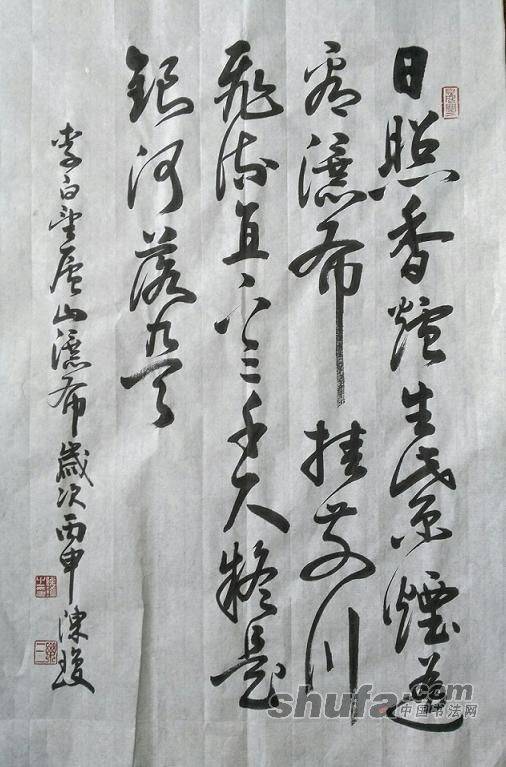 日照香炉生紫煙遥
看瀑布挂前川
飛流直下三千尺疑是
銀河落九天
李白望廬山瀑布歲次丙申陳
shufa.com
中国书法网